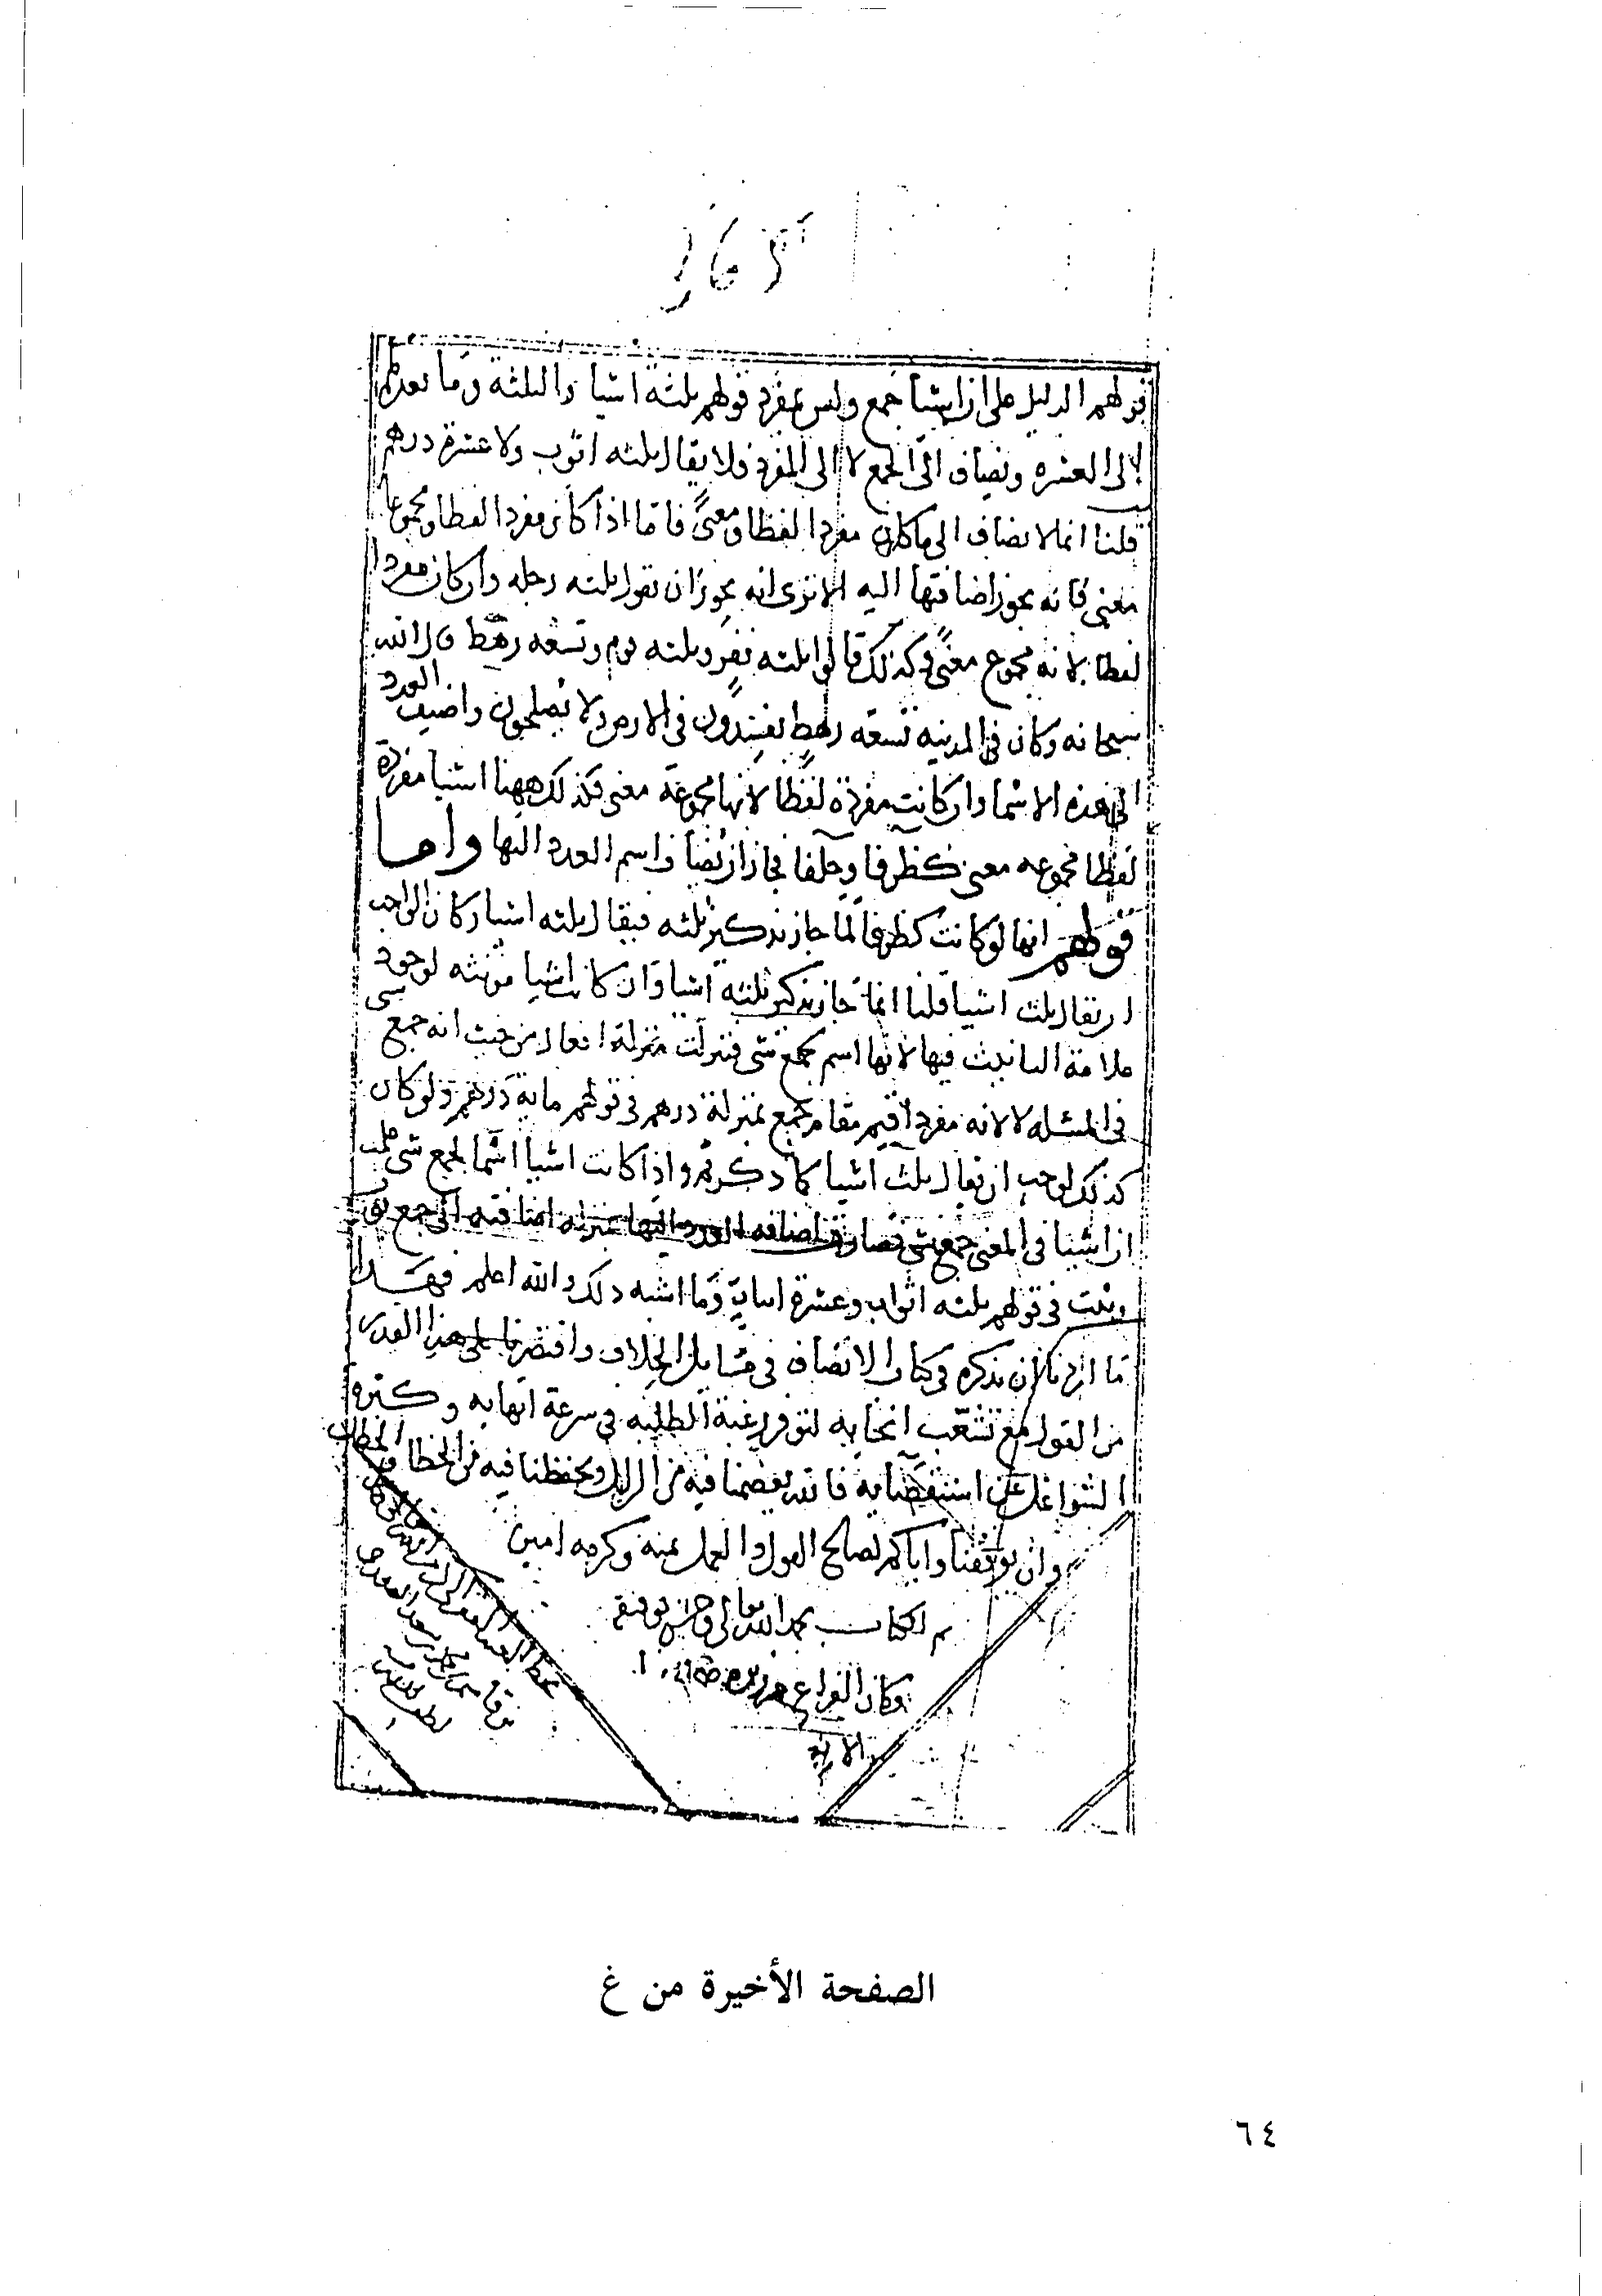 165
قولهم الدليل على ان اشيا جمع وليس بمفرد قولهم ثلثة اشيا والثلثة وما بعدها
الى العشره وتضاف الى الجمع لا الى المفرد فلا يقال ثلثه اثوب ولا عشرة درهم
قلنا انما لا تضاف الى ما كان مفردا لفظا ومعنى فاما اذا كان مفردا لفظا ومجموعا
معنى فانه يجوز اضافتها اليه الا ترى انه يجوز ان تقول ثلثه رجله وان كان مفردا
لفظا لانه مجموع معنى وكذلك قالوا ثلثه نفر وثلثه قوم وتسعه رهط قال الله
سبحانه وكان في المدينه تسعه رهط يفسدون في الارض ولا يصلحون واضيف العدد
الى هذه الاسما وان كانت مفردة لفظا لانها مجموعة معنى فكذلك ههنا اشيا مفردة
لفظا مجموعه معنى كطرفا وحلفا فجاز ان يضاف اسم العدد اليها واما
قولهم انها لو كانت كطرفا لما جاز تذكير ثلثه فيقال ثلثه اشيا وكان الواجب
ان يقال ثلث اشيا قلنا انما جاز تذكير ثلثه اشيا وان كانت اشيا مؤنثه لوجود
علامة التانيث فيها لانها اسم لجمع شي فتنزلت منزلة افعال من حيث انه جمع شي
في المسئله لا لانه مفرد اقيم مقام جمع بمنزلة درهم في قولهم ماية درهم ولو كان
كذلك لوجب ان يقال ثلث اشيا كما ذكرتم واذا كانت اشيا اسما لجمع شي علمت
ان اشيا في المعنى جمع شي فصارت اضافه العدد اليها بمنزله اضافته الى جمع ثوب
وبيت في قولهم ثلثه اثواب وعشرة ابيات وما اشبه ذلك والله اعلم فهذا
ما اردنا ان نذكره في كتاب الانصاف في مسايل الخلاف واقتصرنا على هذا القدر
من القول مع تشعب انحايه لتوفر رغبة الطلبه في سرعة انهايه وكثرة
الشواغل عن استقصايه فالله يعصمنا فيه من الزلل ويحفظنا فيه من الخطا والخطل
وان يوفقنا واياكم لصالح القول والعمل بمنه وكرمه امين
تم الكتاب بحمد الله تعالى وحسن توفيقه
وكان الفراغ
الصفحة الأخيرة من غ
٦٤